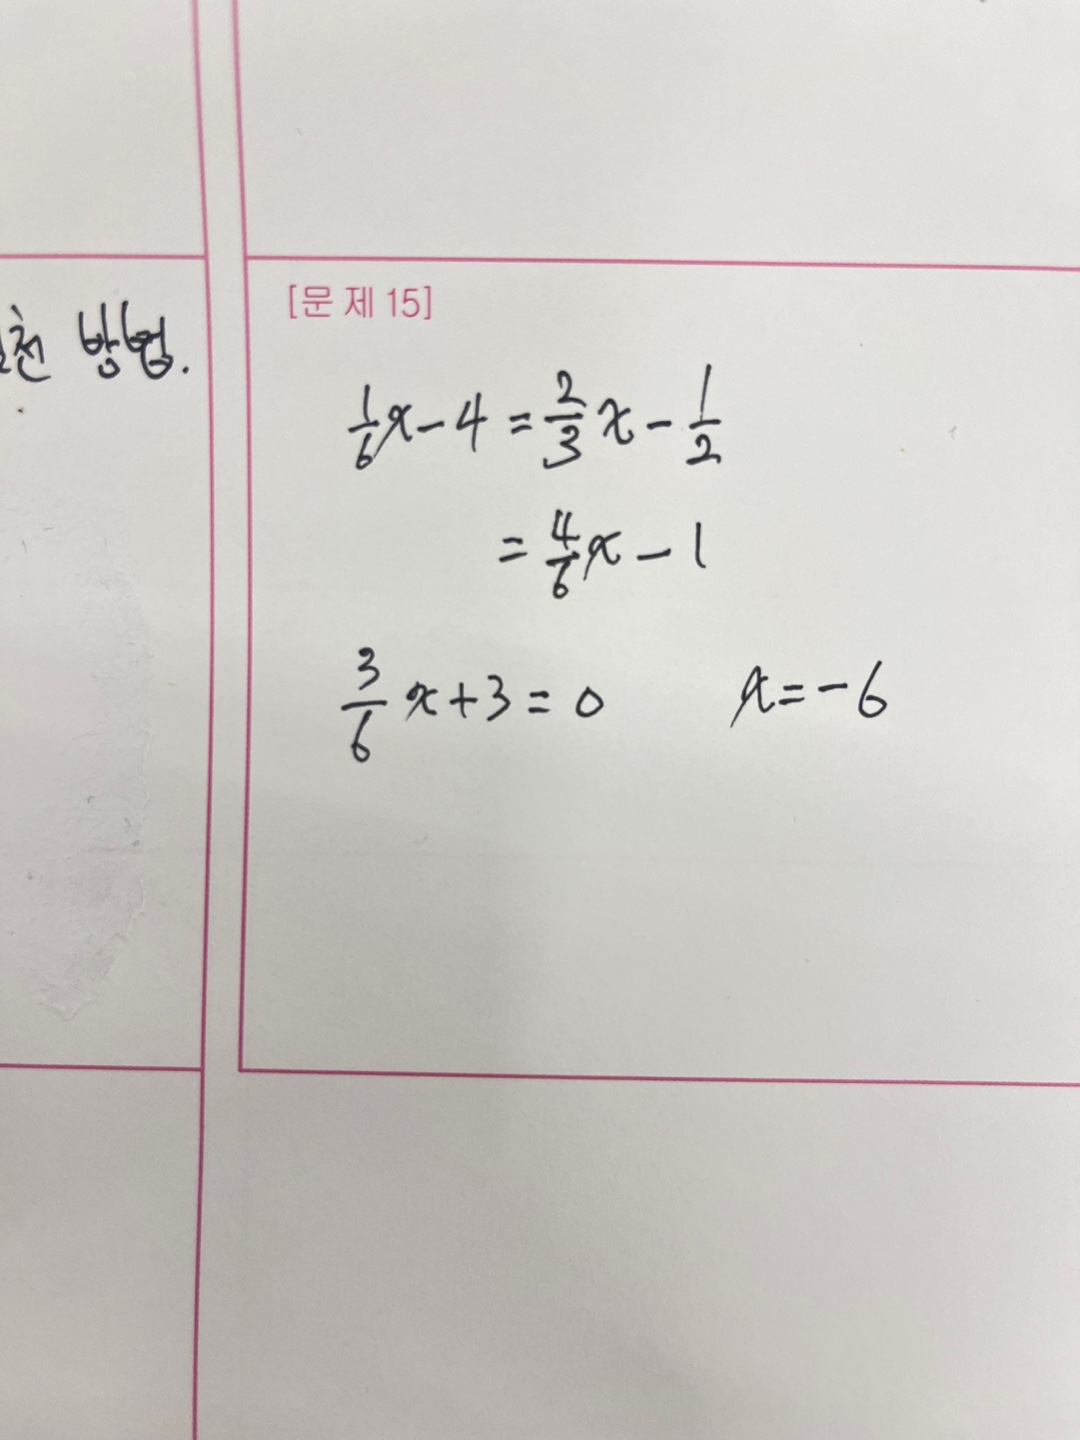 방법.
[문 제 15]
1/6 x - 4 = 2/3 x - 1/2
= 4/6 x - 1
3/6 x + 3 = 0 x = -6